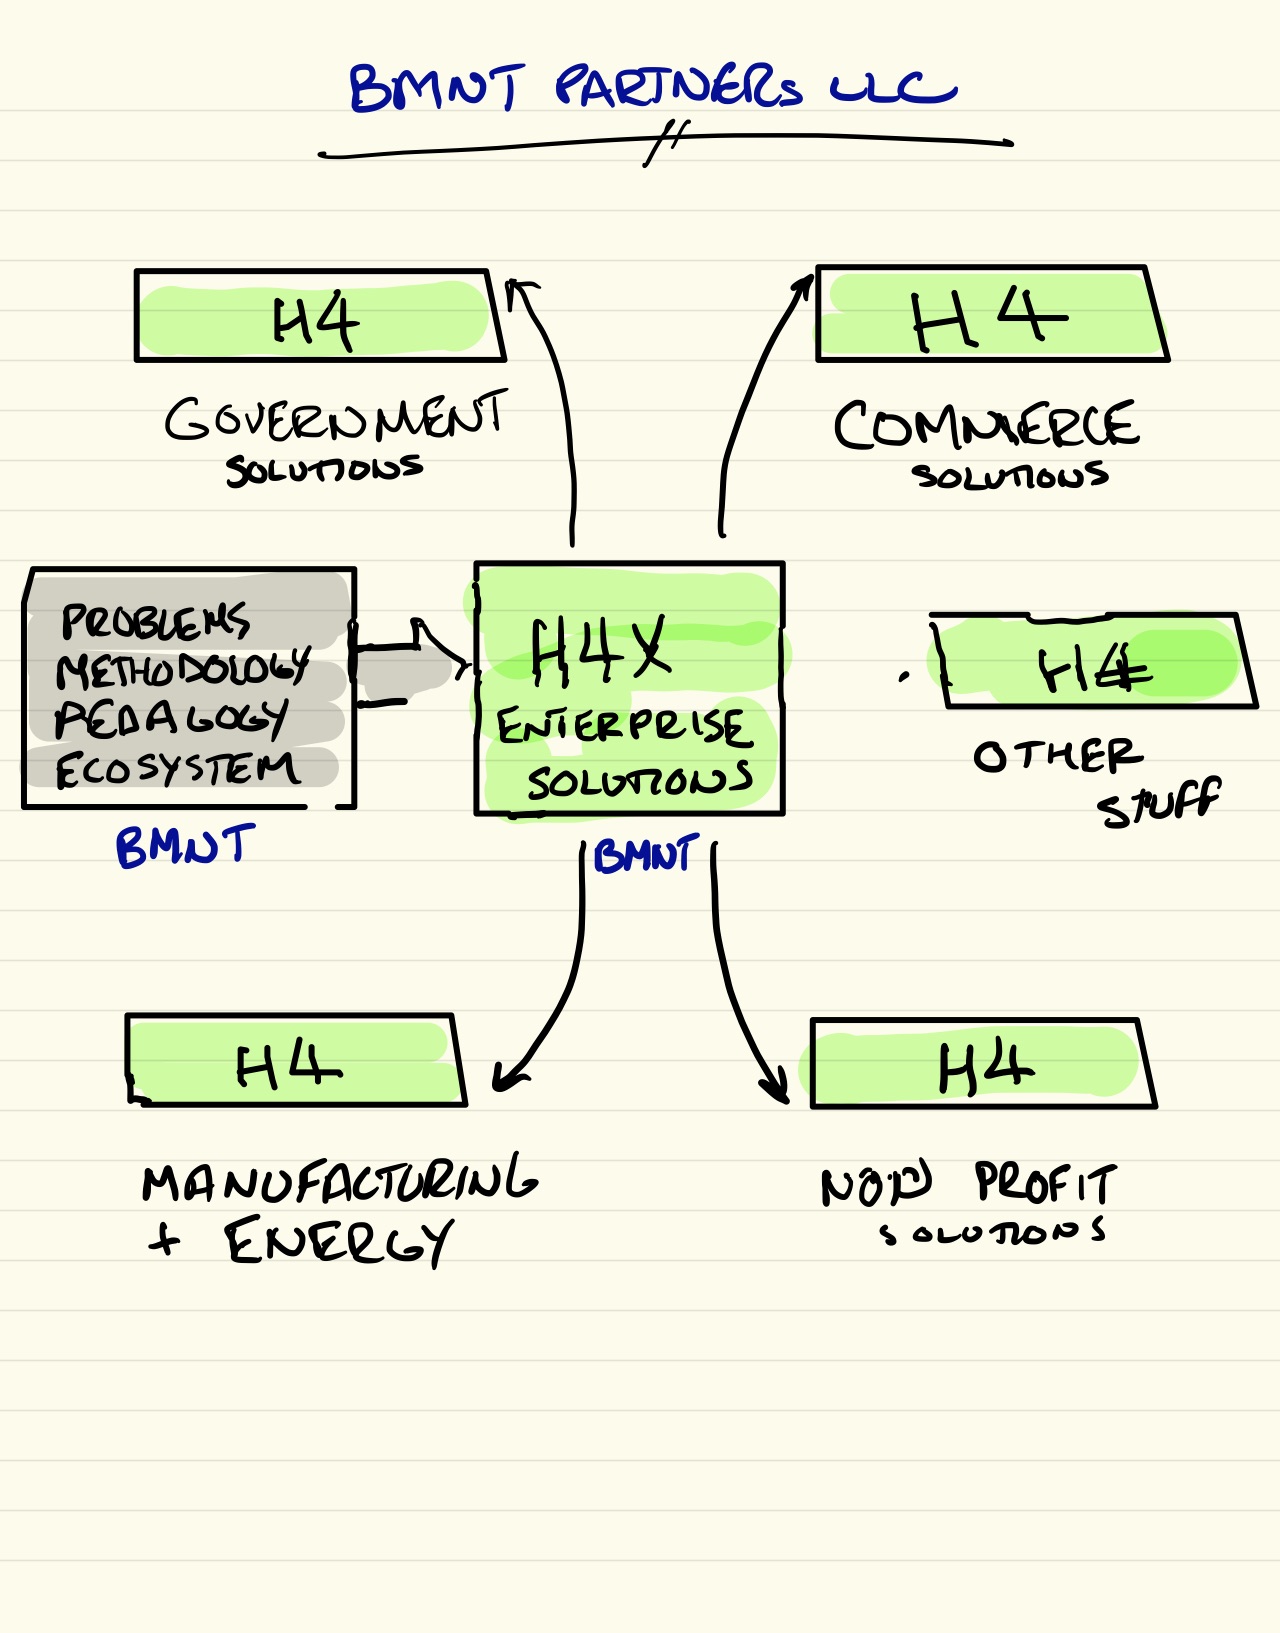 BMNT PARTNERS LLC
H4
GOVERNMENT
SOLUTIONS
H4
COMMERCE
SOLUTIONS
PROBLEMS
METHODOLOGY
PEDAGOGY
ECOSYSTEM
BMNT
H4X
ENTERPRISE
SOLUTIONS
BMNT
H4
OTHER
STUFF
H4
MANUFACTURING
+ ENERGY
H4
NON PROFIT
SOLUTIONS